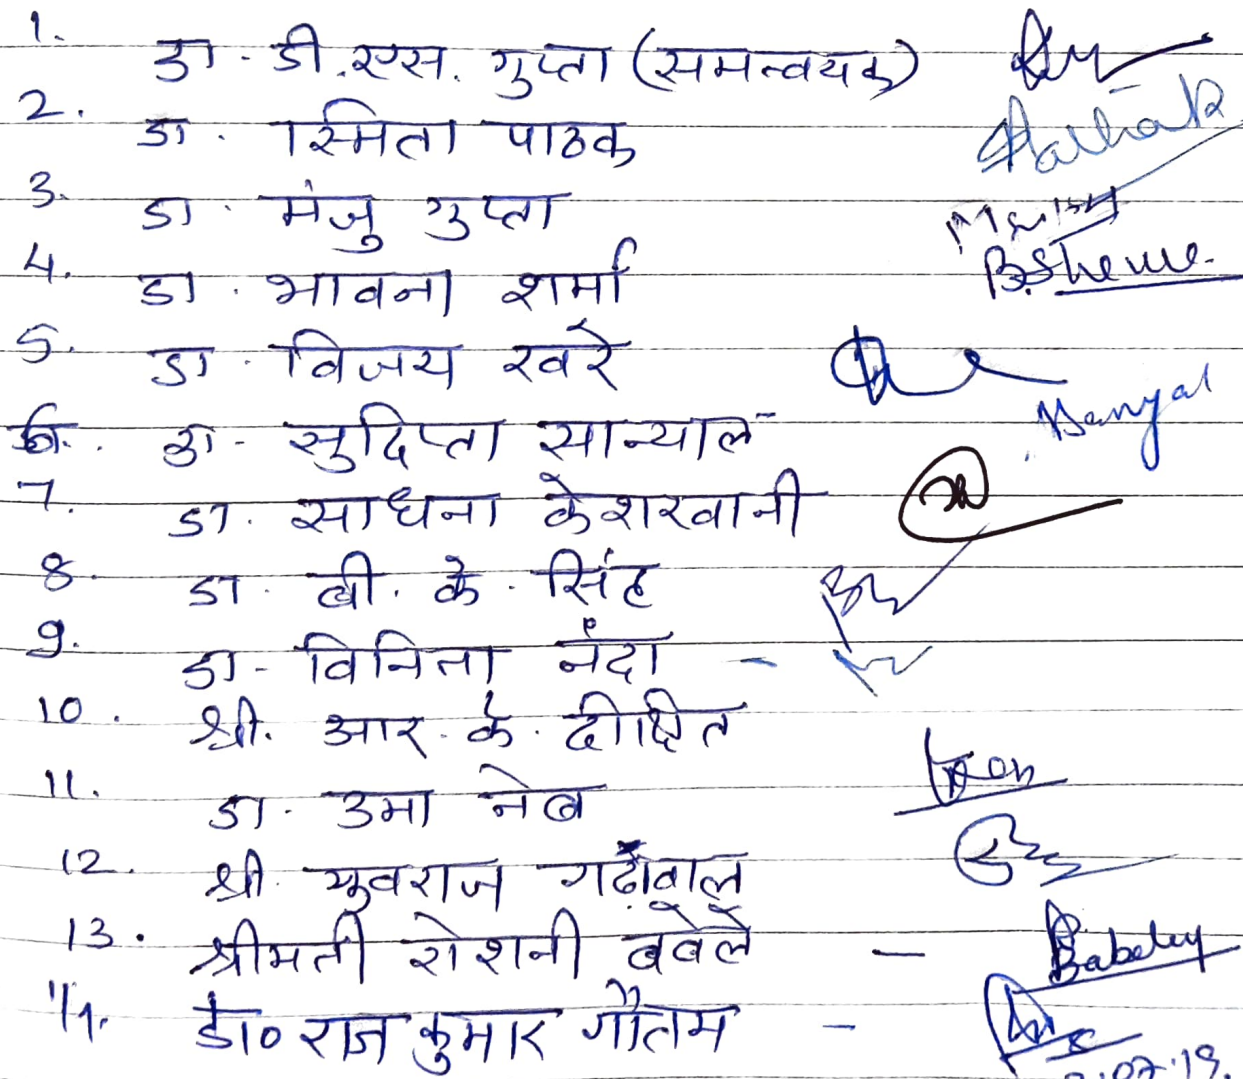 1. डा. डी. एस. गुप्ता (समन्वयक)
2. डा. स्मिता पाठक Pathak
3. डा. मंजु गुप्ता
4. डा. भावना शर्मा
5. डा. विजय खरे
6. डा- सुदिप्ता सान्याल - Sanyal
7. डा. साधना केशरवानी
8. डा. बी. के. सिंह
9. डा- विनिता नंदा -
10. श्री. आर. के. दीक्षित
11. डा. उमा नेब
12. श्री युवराज गढ़ेवाल
13. श्रीमती रोशनी बबेले - Babeley
14. डॉ० राजकुमार गौतम -
07.19.